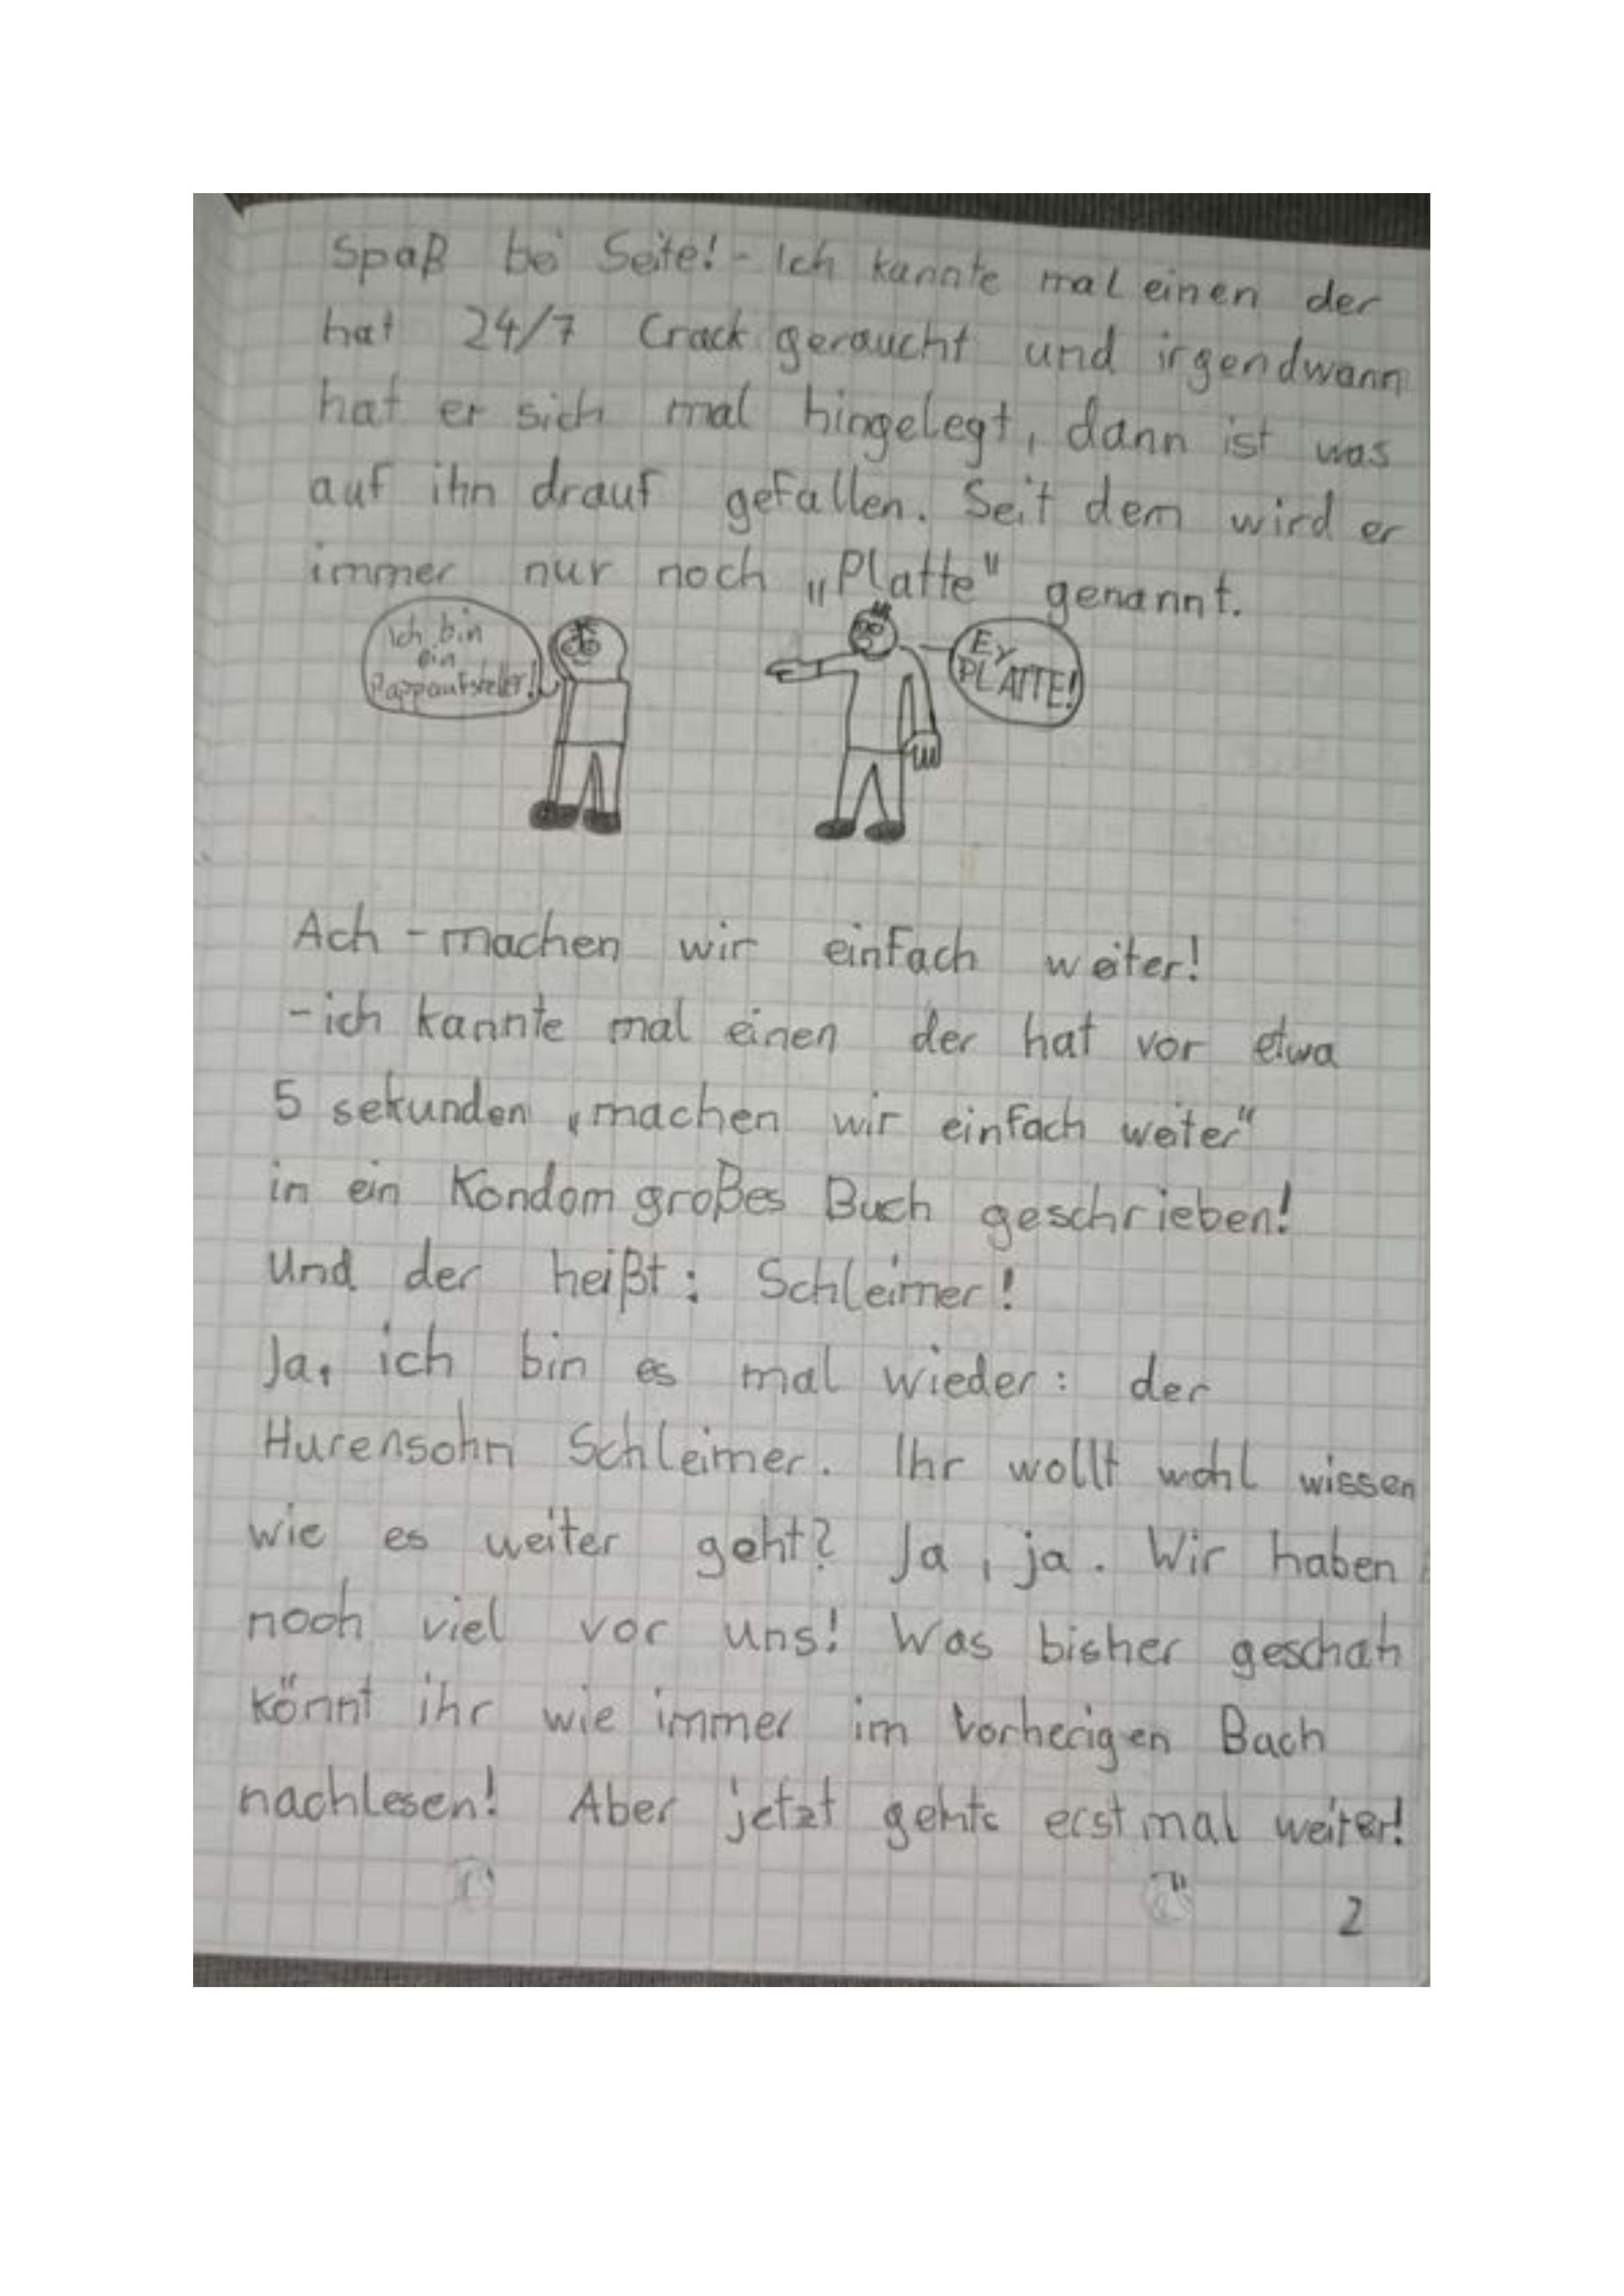 Spaß bei Seite! - Ich kannte mal einen der
hat 24/7 Crack geraucht und irgendwann
hat er sich mal hingelegt, dann ist was
auf ihn drauf gefallen. Seit dem wird er
immer nur noch „Platte" genannt.
Ich bin
ein
Pappaufsteller!
EY
PLATTE!
Ach - machen wir einfach weiter!
- ich kannte mal einen der hat vor etwa
5 sekunden „machen wir einfach weiter"
in ein Kondom großes Buch geschrieben!
Und der heißt: Schleimer!
Ja, ich bin es mal wieder: der
Hurensohn Schleimer. Ihr wollt wohl wissen
wie es weiter geht? Ja, ja. Wir haben
noch viel vor uns! Was bisher geschah
könnt ihr wie immer im vorherigen Bach
nachlesen! Aber jetzt gehts erst mal weiter!
2